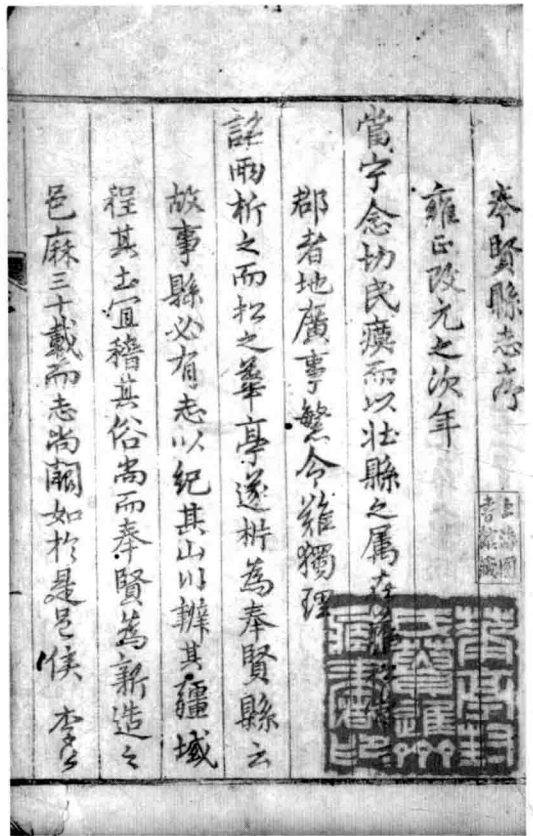 奉賢縣志序
雍正改元之次年
當宁念切民瘼而以壯縣之属
郡者地廣事繁令難獨理
詔兩析之而松之華亭遂析為奉賢縣云
故事縣必有志以紀其山川辨其疆域
程其土宜稽其俗尚而奉賢為新造之
邑歴三十載而志尚闕如於是邑侯李公